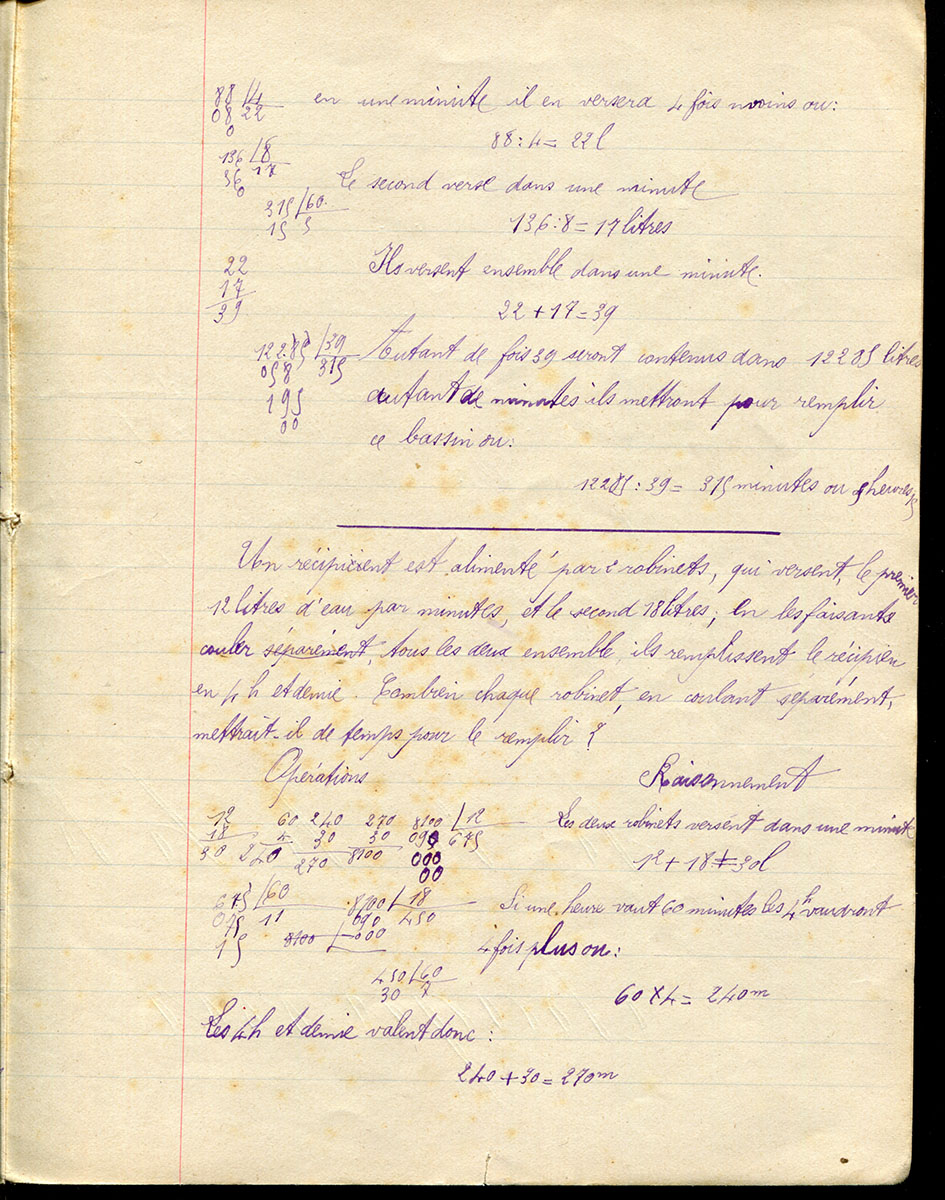 88 /4 en une minute il en versera 4 fois moins ou:
08 22
0
88 : 4 = 22 l
136 /8
56 17
0
Le second verse dans une minute
315 /60
15 5
136 : 8 = 17 litres
22
17
39
Ils versent ensemble dans une minute.
22 + 17 = 39
12285 /39 Autant de fois 39 seront contenus dans 12285 litres
058 315
195 autant de minutes ils mettront pour remplir
00
ce bassin ou:
12285 : 39 = 315 minutes ou 5 heures 15
Un récipient est alimenté par 2 robinets, qui versent, le premier
12 litres d'eau par minutes, et le second 18 litres; En les faisants
couler séparément, tous les deux ensemble, ils remplissent le récipien
en 4h et demie. Combien chaque robinet, en coulant séparément,
mettrait-il de temps pour le remplir ?
Opérations Raisonnement
12 60 240 270 8100 /12 Les deux robinets versent dans une minute
18 4 30 30 090 675
30 240 270 8100 000
00
12 + 18 = 30l
675 /60 8100 /18 Si une heure vaut 60 minutes les 4h vaudront
075 11 090 450
15 8100 / 000
4 fois plus ou:
450 /60
30 7
60 × 4 = 240m
Les 4h et demie valent donc :
240 + 30 = 270m